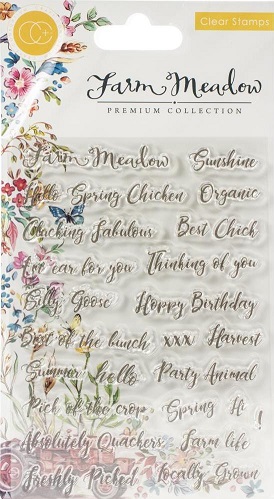 CC+
Clear Stamps
Farm Meadow
PREMIUM COLLECTION
Farm Meadow Sunshine
Hello Spring Chicken Organic
Clucking Fabulous Best Chick
I'm ear for you Thinking of you
Silly Goose Happy Birthday
Best of the bunch xxx Harvest
Summer hello Party Animal
Pick of the crop Spring Hi !
Absolutely Quackers Farm life
Freshly Picked Locally Grown